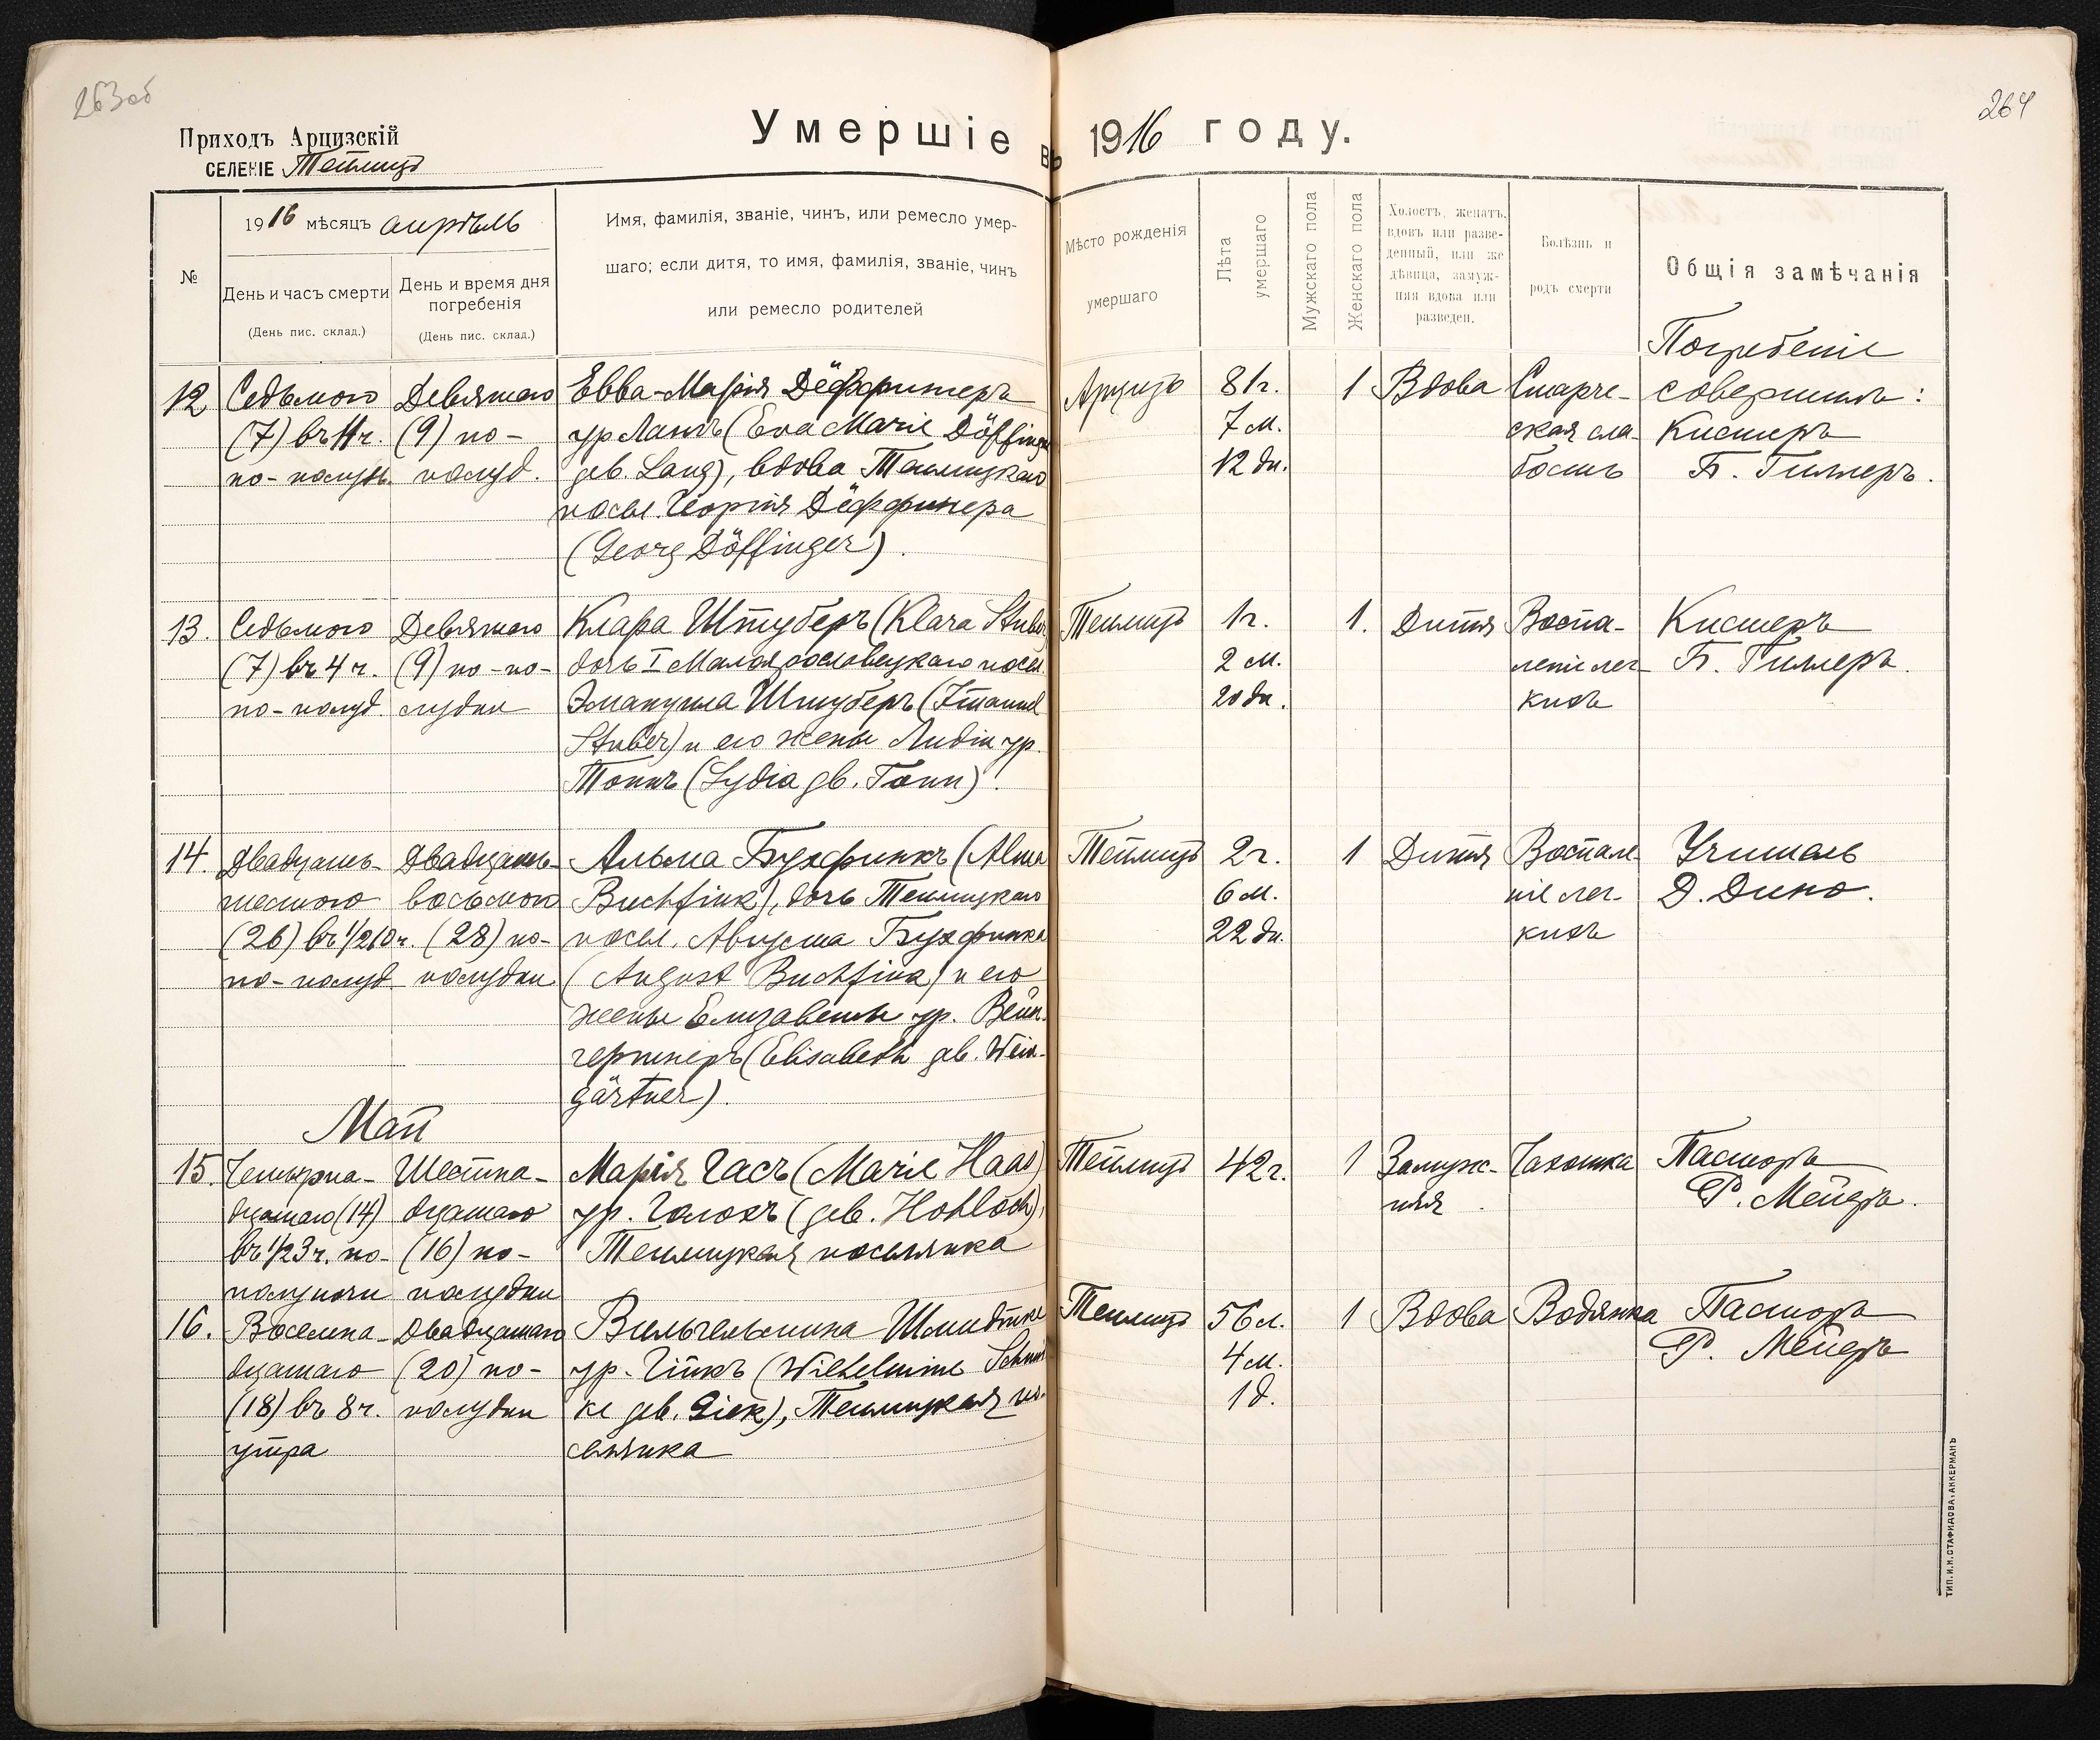 263об
264
Умершіе въ 1916 году.
Приходъ Арцизскій
СЕЛЕНІЕ Теплицъ
№
1916 мѣсяцъ апрѣль
День и часъ смерти
(День пис. склад.)
День и время дня
погребенія
(День пис. склад.)
Имя, фамилія, званіе, чинъ, или ремесло умер-
шаго; если дитя, то имя, фамилія, званіе, чинъ
или ремесло родителей
Мѣсто рожденія
умершаго
Лѣта
умершаго
Мужскаго пола
Женскаго пола
Холостъ, женатъ,
вдовъ или разве-
денный, или же
дѣвица, замуж-
няя вдова или
разведен.
Болѣзнь и
родъ смерти
Общія замѣчанія
Погребеніе
совершилъ:
12
Седьмого
(7) въ 11 ч.
по-полудн.
Девятаго
(9) по-
полуд.
Евва-Марія Дёффингеръ
ур Лангъ (Eva Marie Döffinger
geb. Lang), вдова Теплицкаго
посел. Георгія Дёффингера
(Georg Döffinger).
Арцизъ
81 г.
7 м.
12 дн.
1
Вдова
Старче-
ская сла-
бость
Кистеръ
Б. Гиллеръ.
13.
Седьмого
(7) въ 4 ч.
по-полуд.
Девятаго
(9) по-по-
лудни
Клара Штуберъ (Klara Stuber
дочь I Малоярославецкаго посел.
Эмануила Штуберъ (Imanuel
Stuber) и его жены Лидіи ур.
Тоннъ (Lydia gb. Tonn).
Теплицъ
1 г.
2 м.
20 дн.
1.
Дитя
Воспа-
леніе лег-
кихъ
Кистеръ
Б. Гиллеръ.
14.
Двадцать-
шестого
(26) въ 1/2 10 ч.
по-полуд
Двадцать-
восьмого
(28) по-
полудни
Альма Бухфинкъ (Alma
Buchfink), дочь Теплицкаго
посел. Августа Бухфинка
(August Buchfink) и его
жены Елизаветы ур. Вейн-
гертнеръ (Elisabeth geb. Wein-
gärtner).
Теплицъ
2 г.
6 м.
22 дн.
1
Дитя
Воспале-
ніе лег-
кихъ
Учитель
Д. Дино.
Май
15.
Четырна-
дцатаго (14)
въ 1/2 3 ч. по-
полуночи
Шестна-
дцатаго
(16) по-
полудни
Марія Гасъ (Marie Haas)
ур. Голохъ (geb. Hohloch),
Теплицкая поселянка
Теплицъ
42 г.
1
Замуж-
няя
Чахотка
Пасторъ
Р. Мейеръ.
16.
Восемна-
дцатаго
(18) въ 8 ч.
утра
Двадцатаго
(20) по-
полудни
Вильгельмина Шмидтке
ур. Гикъ (Wilhelmine Schmid
ke geb. Giek), Теплицкая по-
селянка
Теплицъ
56 л.
4 м.
1 д.
1
Вдова
Водянка
Пасторъ
Р. Мейеръ
ТИП. И. Н. СТАФИДОВА, АККЕРМАНЪ